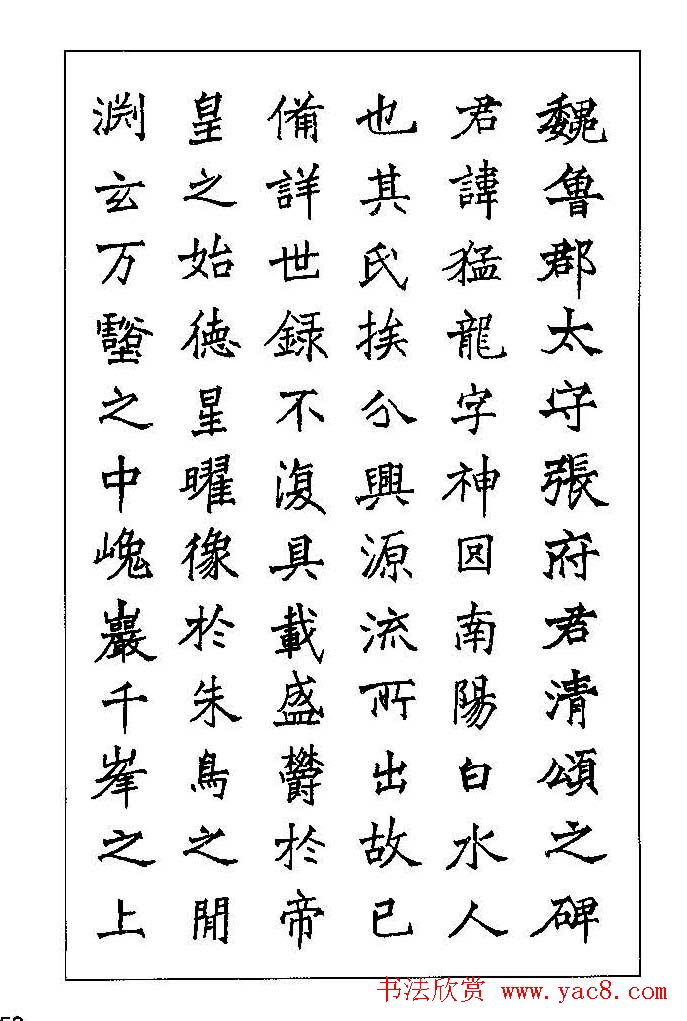 魏魯郡太守張府君清頌之碑
君諱猛龍字神囙南陽白水人
也其氏族分興源流所出故已
備詳世録不復具載盛欝於帝
皇之始德星曜像於朱鳥之閒
渕玄万壑之中嵬巖千峯之上
书法欣赏 www.yac8.com